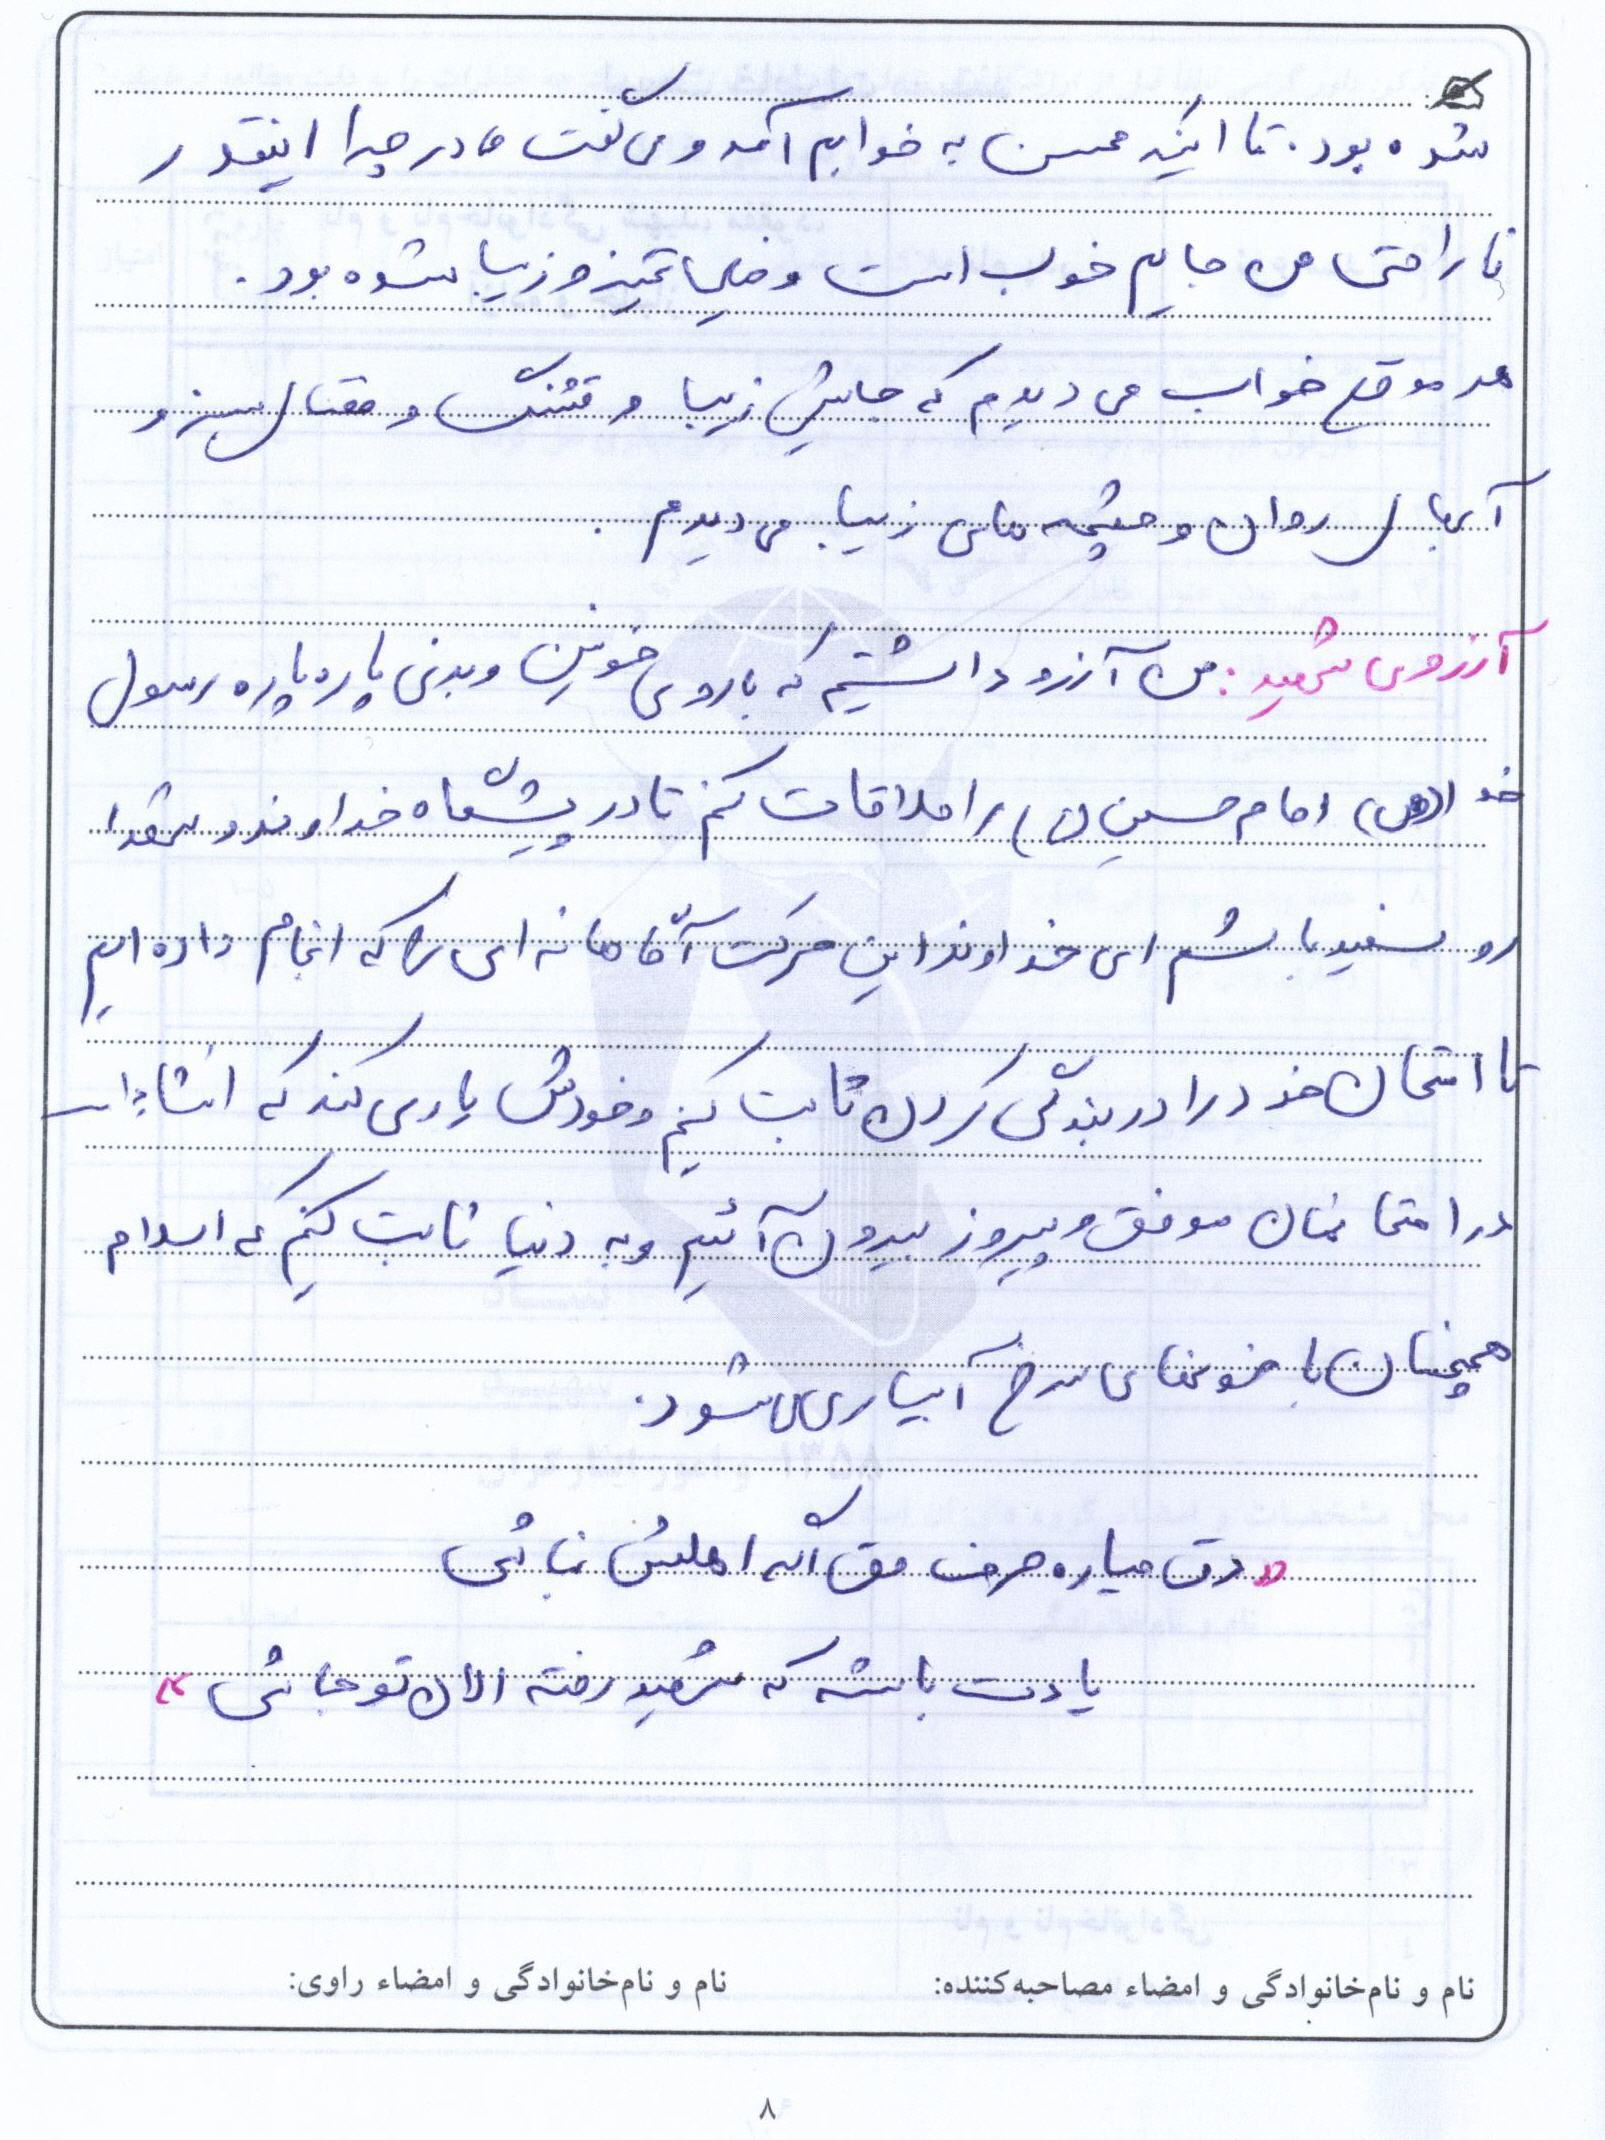 شده بود. تا اینکه محسن به خوابم آمد و می گفت مادر چرا اینقدر
ناراحتی من جایم خوب است و خیلی تمیز و زیبا شده بود.
هر موقع خواب می دیدم که جایش زیبا و قشنگ و فضای سبز و
آبهای روان و چشمه های زیبا می دیدم.
آرزوی شهید: من آرزو داشتم که با روی خونین و بدنی پاره پاره رسول
خدا (ص) امام حسین (ع) را ملاقات کنم تا در پیشگاه خداوند و شهدا
رو سفید باشم ای خداوند این حرکت آگاهانه ای را که انجام داده ایم
تا امتحان خود را در بندگی کردن ثابت کنیم و خودش یاری کند که انشاءا...
در امتحانمان موفق و پیروز بیرون آئیم و به دنیا ثابت کنیم که اسلام
همچنان با خونهای سرخ آبیاری می شود.
«دق میاره حرف حق اگه اهلش نباشی
یادت باشه که شهید رفته الان تو جاشی»
نام و نام‌خانوادگی و امضاء مصاحبه‌کننده: نام و نام‌خانوادگی و امضاء راوی:
۸